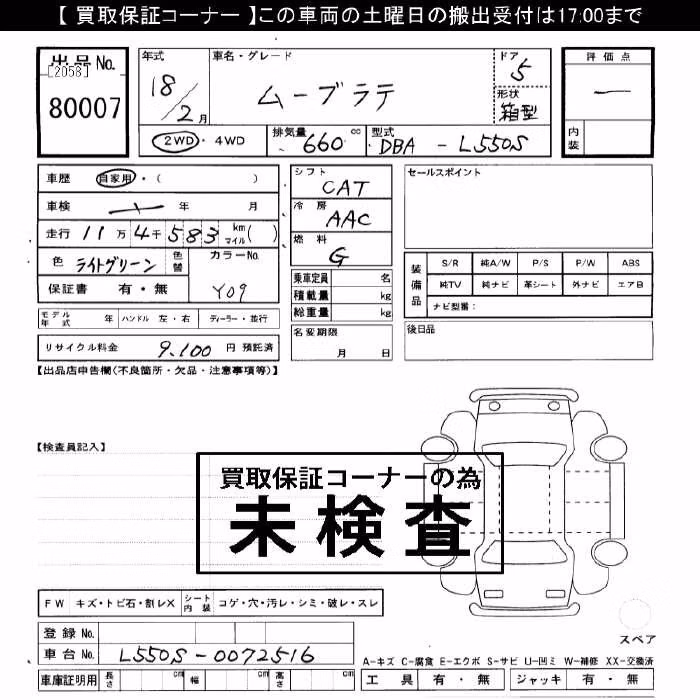 【 買取保証コーナー 】この車両の土曜日の搬出受付は17:00まで
出品No.
[2058]
80007
年式
18/2月
車名・グレード
ムーブラテ
ドア
5
形状
箱型
評価点
ー
内装
2WD・4WD
排気量
660 cc
型式
DBA - L550S
車歴 自家用・( )
車検 年 月
走行 11万4千583 km マイル( )
色 ライトグリーン 色替
カラーNo.
Y09
保証書 有・無
シフト
CAT
冷房
AAC
燃料
G
乗車定員 名
積載量 kg
総重量 kg
名変期限
月 日
セールスポイント
装備品
S/R 純A/W P/S P/W ABS
純TV 純ナビ 革シート 外ナビ エアB
ナビ型番:
後日品
モデル年式 年 ハンドル 左・右 ディーラー・並行
リサイクル料金 9,100 円 預託済
【出品店申告欄(不良箇所・欠品・注意事項等)】
【検査員記入】
買取保証コーナーの為
未検査
FW キズ・トビ石・割レX シート内装 コゲ・穴・汚レ・シミ・破レ・スレ
登録No.
車台No. L550S-0072516
車庫証明用 長さ cm 幅 cm 高さ cm
スペア
A-キズ C-腐食 E-エクボ S-サビ U-凹ミ W-補修 XX-交換済
工具 有・無 ジャッキ 有・無